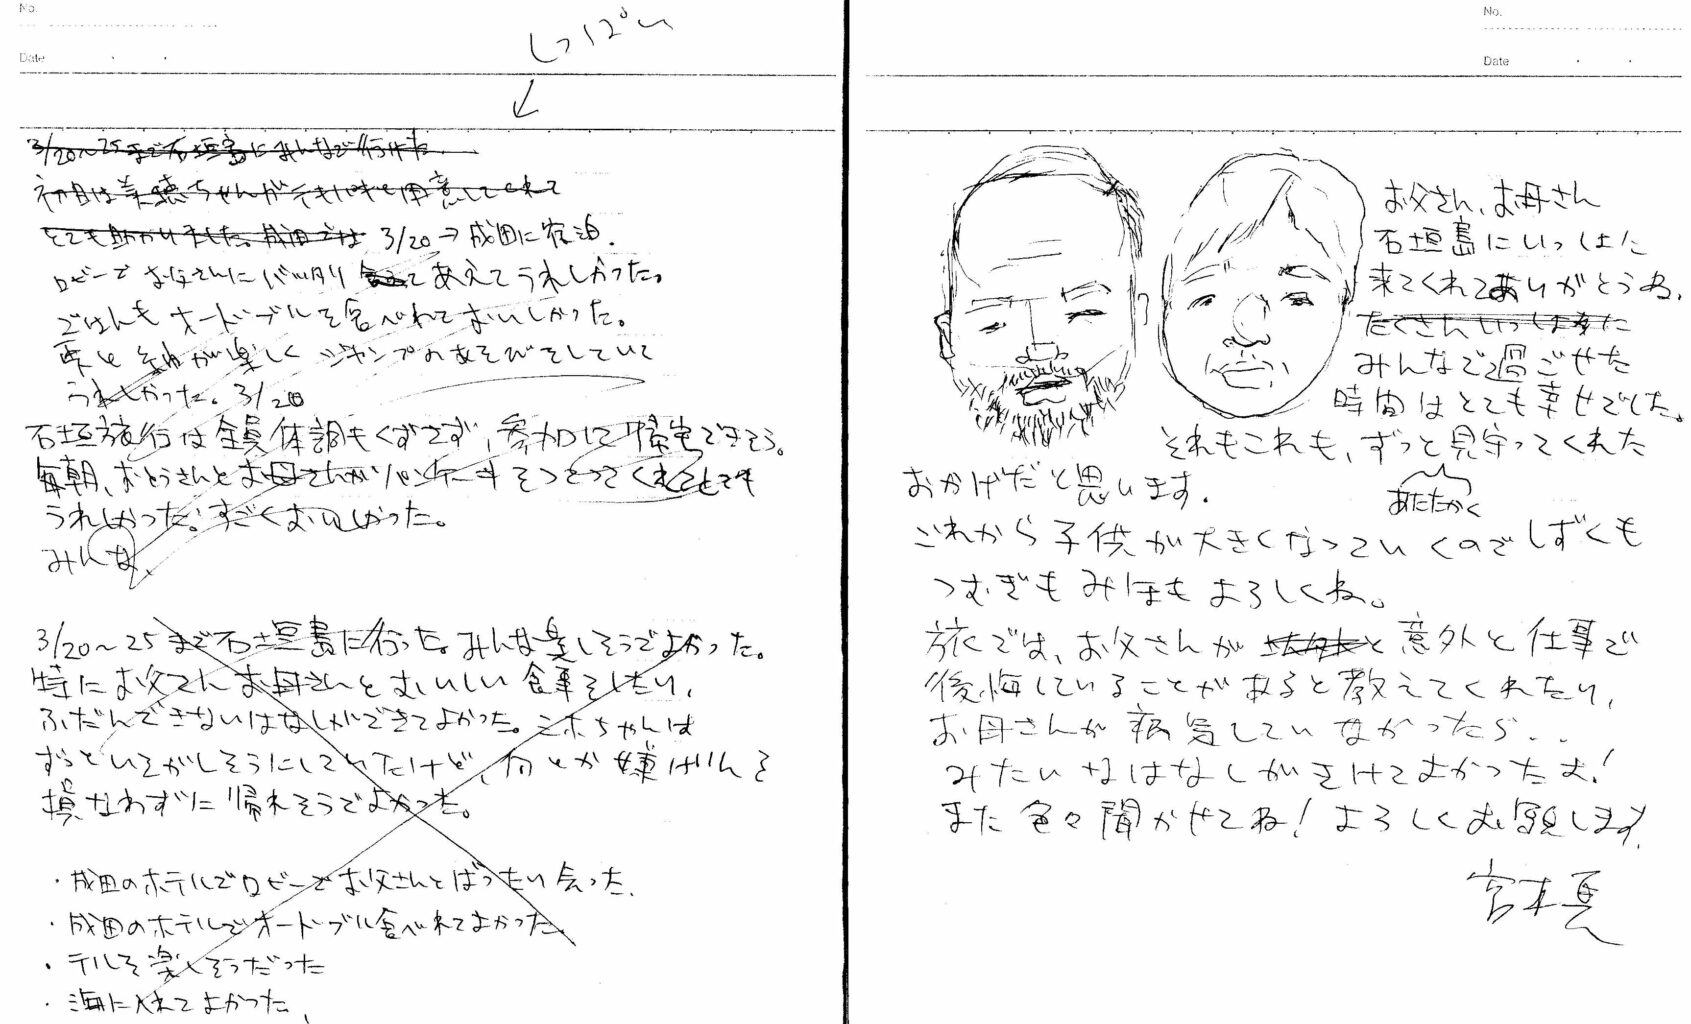 No.
Date
しっぱい
3/20〜25まで石垣島にみんなで行けた
初日は美穂ちゃんがテキパキと用意してくれて
とても助かりました。成田では 3/20→成田に宿泊.
ロビーでお父さんにバッタリ会えて あえてうれしかった。
ごはんもオードブルを食べれておいしかった。
雫と紬が楽しくジャンプのあそびをしていて
うれしかった。3/20
石垣旅行は全員体調もくずさず、参加して帰宅できそう。
毎朝、おとうさんとお母さんがパンケーキそつくってくれてとても
うれしかった。すごくおいしかった。
みんな、
3/20〜25まで石垣島に行った。みんな楽しそうでよかった。
特にお父さんお母さんとおいしい食事をしたり、
ふだんできないはなしができてよかった。ミホちゃんは
ずっといそがしそうにしていたけど、何とか嫌げんを
損なわずに帰れそうでよかった。
・成田のホテルでロビーでお父さんとばったり会った.
・成田のホテルでオードブル食べれてよかった.
・テルを楽しそうだった
・海に入れてよかった.
No.
Date
お父さん、お母さん
石垣島にいっしょに
来てくれてありがとうね.
たくさんいっしょに
みんなで過ごせた
時間はとても幸せでした。
それもこれも、ずっと見守ってくれた
おかげだと思います.
あたたかく
これから子供が大きくなっていくのでしずくも
つむぎもみほもよろしくね。
旅では、お父さんが 意外と仕事で
後悔していることがあると教えてくれたり,
お母さんが病気していなかったら..
みたいなはなしがきけてよかったよ!
また色々聞かせてね!よろしくお願します.
宮本真